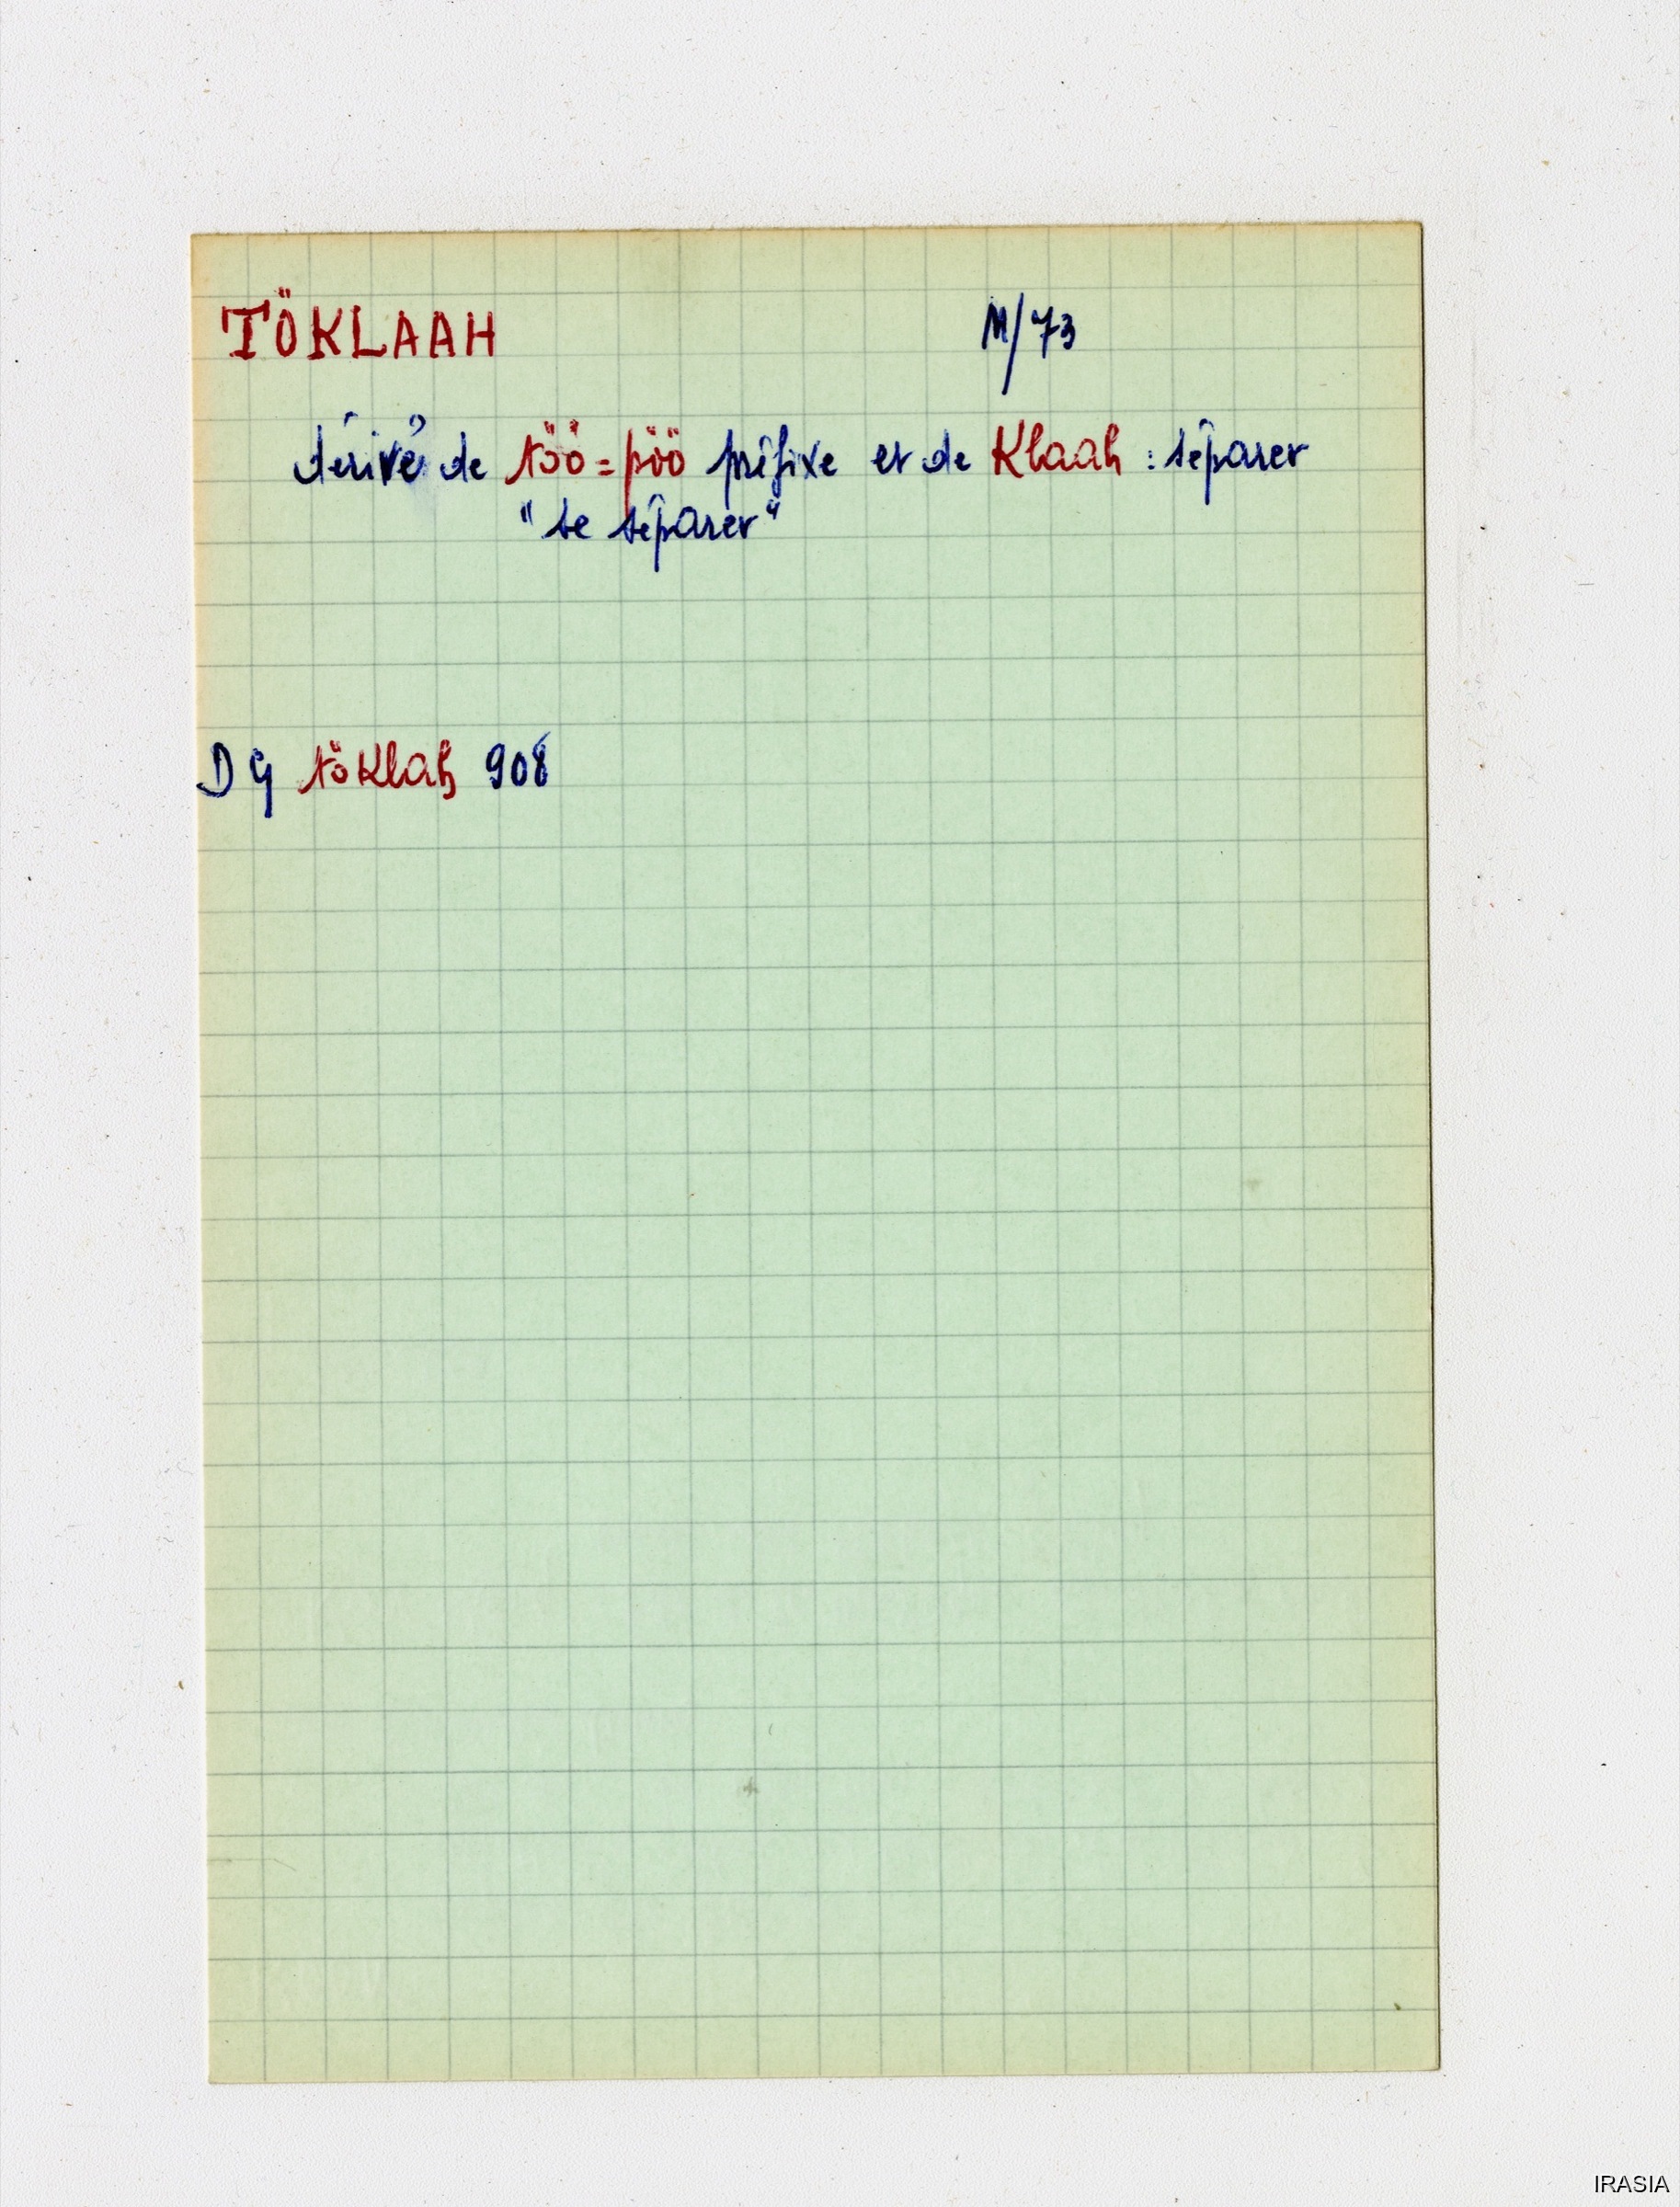 TÖKLAAH M/73
dérivé de töö = pöö préfixe et de Klaah : séparer
"se séparer"
DG töklah 908
IRASIA